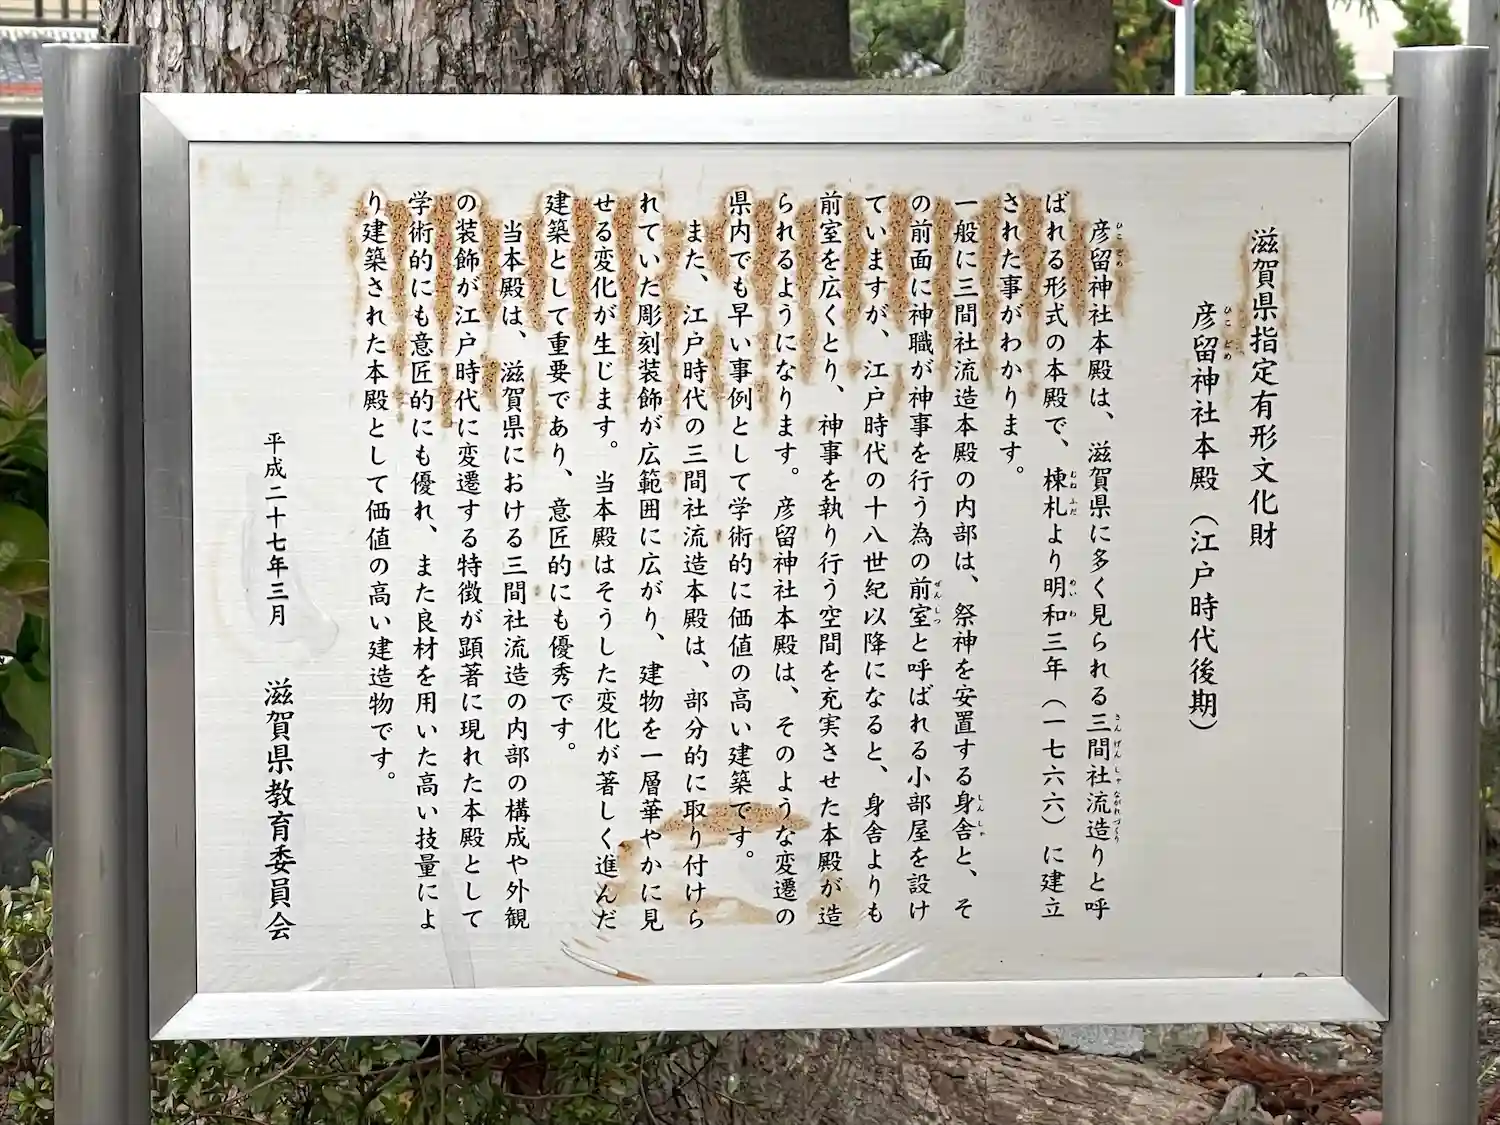 滋賀県指定有形文化財
彦留神社本殿（江戸時代後期）
彦留神社本殿は、滋賀県に多く見られる三間社流造りと呼
ばれる形式の本殿で、棟札より明和三年（一七六六）に建立
された事がわかります。
一般に三間社流造本殿の内部は、祭神を安置する身舎と、そ
の前面に神職が神事を行う為の前室と呼ばれる小部屋を設け
ていますが、江戸時代の十八世紀以降になると、身舎よりも
前室を広くとり、神事を執り行う空間を充実させた本殿が造
られるようになります。彦留神社本殿は、そのような変遷の
県内でも早い事例として学術的に価値の高い建築です。
また、江戸時代の三間社流造本殿は、部分的に取り付けら
れていた彫刻装飾が広範囲に広がり、建物を一層華やかに見
せる変化が生じます。当本殿はそうした変化が著しく進んだ
建築として重要であり、意匠的にも優秀です。
当本殿は、滋賀県における三間社流造の内部の構成や外観
の装飾が江戸時代に変遷する特徴が顕著に現れた本殿として
学術的にも意匠的にも優れ、また良材を用いた高い技量によ
り建築された本殿として価値の高い建造物です。
平成二十七年三月　滋賀県教育委員会